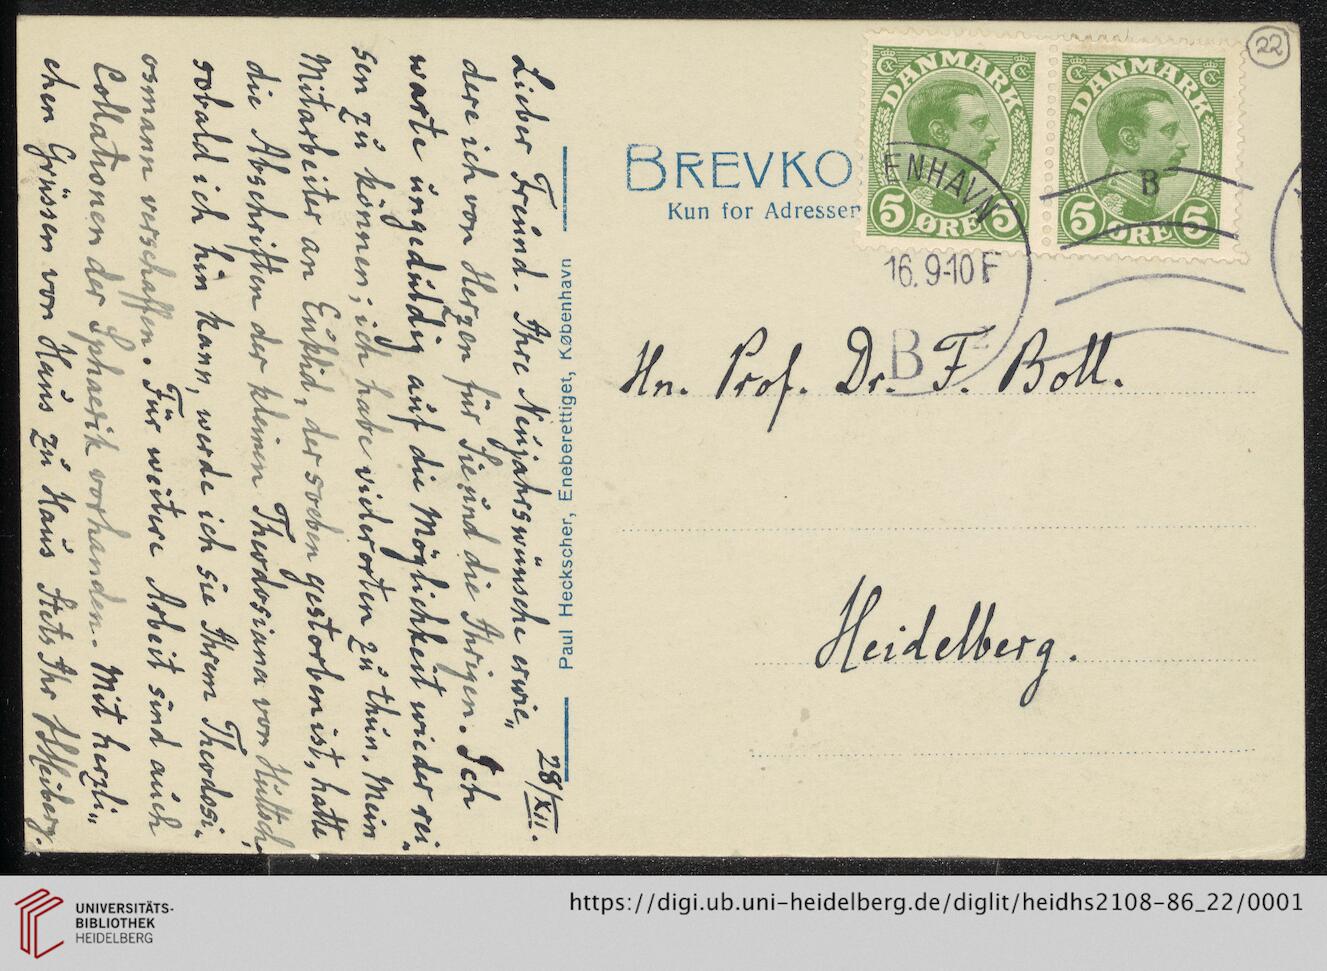 28/XII.
Lieber Freund. Ihre Neujahrswünsche erwie„
dere ich von Herzen für Sie und die Ihrigen. Ich
warte ungeduldig auf die Möglichkeit wieder rei„
sen zu können; ich habe vielerorten zu thun. Mein
Mitarbeiter an Euklid, der soeben gestorben ist, hatte
die Abschriften der kleinen Theodosiana von Hultsch,
sobald ich hin kann, werde ich sie Ihrem Theodosi„
osmann verschaffen. Für weitere Arbeit sind auch
Collationen der Sphaerik vorhanden. Mit herzli„
chen Grüssen von Haus zu Haus Stets Ihr Heiberg.
Paul Heckscher, Eneberettiget, København
BREVKO
Kun for Adressen
22
DANMARK
5 ØRE 5
DANMARK
5 ØRE 5
ENHAVN
16. 9-10 F
B
B
Hn. Prof. Dr. F. Boll.
Heidelberg.
UNIVERSITÄTS-
BIBLIOTHEK
HEIDELBERG
https://digi.ub.uni-heidelberg.de/diglit/heidhs2108-86_22/0001